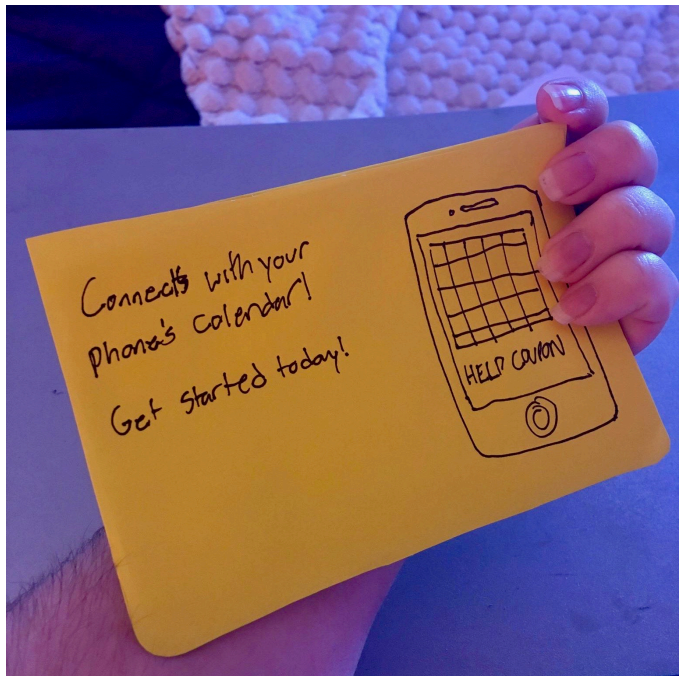 Connects with your
phone's calendar!
Get started today!
HELP COUPON